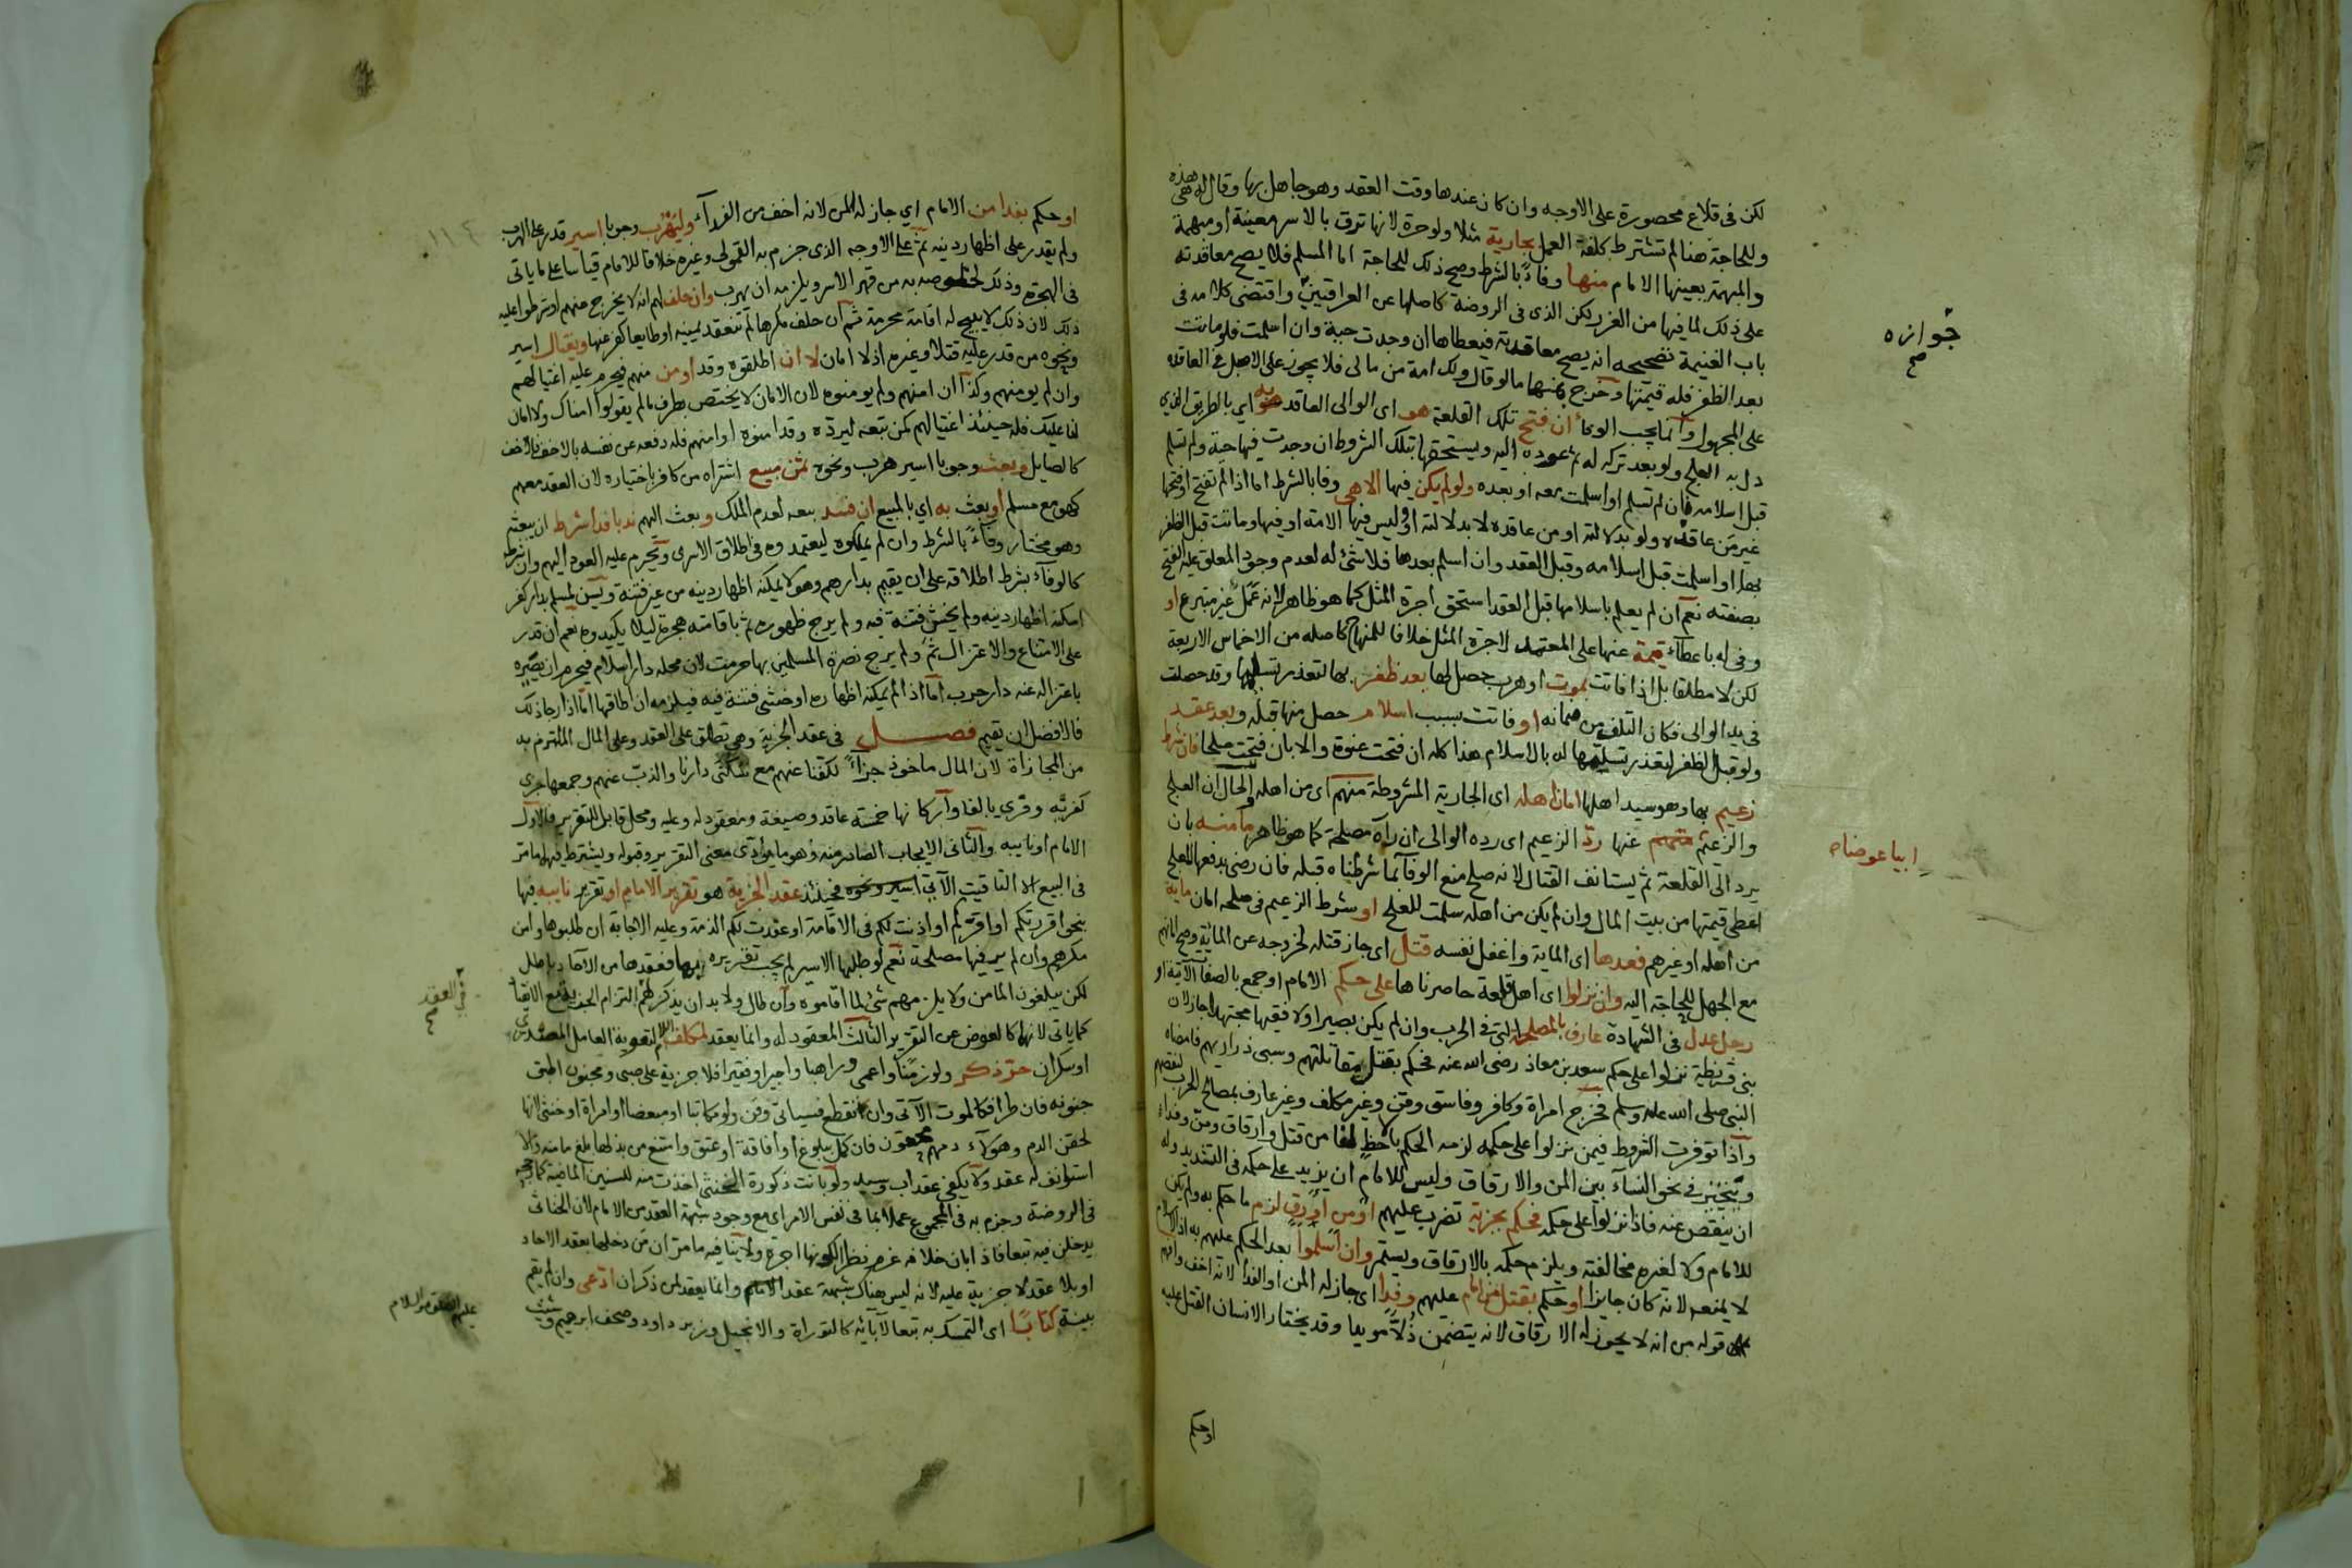 لكن في قلاع محصورة على الاوجه وان كان عندها وقت العقد وهو جاهل بها وقال له هذه هي
وللحاجة هنا لم تشترط كلفة العمل بجارية مثلا ولو حرة لانها ترق بالاسر معينة او مبهمة
والمبهمة يعينها الامام منها وفاءً بالشرط وصح ذلك للحاجة اما المسلم فلا يصح معاقدته
على ذلك لما فيها من الغرر لكن الذى في الروضة كاصلها عن العراقيين واقتضى كلامه في
باب الغنيمة تصحيحه انه يصح معاقدته فيعطاها ان وجدت حية وان اسلمت فلو ماتت
بعد الظفر فله قيمتها وخرج بمنها ما لو قال ولك امة من مالى فلا يجوز على الاصل في العاقد
على المجهول وانما يجب الوفا ان فتح تلك القلعة هو اى الوالى العاقد به اى بالطريق الذى
دل به العلج ولو بعد تركه له ثم عوده اليه ويستحقها بتلك الشروط ان وجدت فيها حية ولم تسلم
قبل اسلامه فان لم تسلم او اسلمت معه او بعده ولو لم يكن فيها الا هى وفا بالشرط اما اذا لم تفتح او فتحها
غير من عاقده ولو بدلالته او من عاقده لا بدلالته او وليس فيها الامة او فيها وماتت قبل الظفر
بها او اسلمت قبل اسلامه وقبل العقد وان اسلم بعدها فلا شئ له لعدم وجود المعلق عليه الفتح
بصفته نعم ان لم يعلم باسلامها قبل العقد استحق اجرة المثل كما هو ظاهر لانه عمل غير متبرع او
وفى له باعطاء قيمة عنها على المعتمد لاجرة المثل خلافا للمنهاج كاصله من الاخماس الاربعة
لكن لا مطلقا بل اذا فاتت بموت او هرب حصل لها بعد ظفر بها لتعذر تسليمها وقد حصلت
في يد الوالى فكان التلف من ضمانه او فاتت بسبب اسلام حصل منها قبله وبعد عقد
ولو قبل الظفر لتعذر تسليمها له بالاسلام هذا كله ان فتحت عنوة والا بان فتحت صلحا فان شرط
زعيم بها وهو سيد اهلها امان اهله اى الجارية المشروطة منهم اى من اهله والحال ان العلج
والزعيم عنها ردّ الزعيم اى رده الوالى ان رآه مصلحة كما هو ظاهر مأمنه بان
يرد الى القلعة ثم يستانف القتال لانه صلح منع الوفا بما شرطناه قبله فان رضى بدفعها للعلج
اعطى قيمتها من بيت المال وان لم يكن من اهله سلمت للعلج او شرط الزعيم في صلحه امان ماية
من اهله او غيرهم فعدها اى الماية واغفل نفسه قتل اى جاز قتله لخروجه عن الماية وصح امانهم
مع الجهل للحاجة اليه وان نزلوا اى اهل قلعة حاصرناها على حكم الامام او جمع بالصفات الآتية او
رجل عدل في الشهادة عارف بالمصلحة التى في الحرب وان لم يكن بصيرا ولا فقيها مجتهدا جاز لان
بنى قريظة نزلوا على حكم سعد بن معاذ رضى الله عنه فحكم بقتل مقاتلتهم وسبى ذراريهم فامضاه
النبى صلى الله عليه وسلم فخرج امراة وكافر وفاسق وقن وغير مكلف وغير عارف بمصالح الحرب لنقصهم
واذا توفرت الشروط فيمن نزلوا على حكمه لزمه الحكم بالاحظ لنا من قتل وارقاق ومن وفداء
ويتخير في نحو النسآء بين المن والارقاق وليس للامام ان يزيد على حكمه في التشديد وله
ان ينقص عنه فاذا نزلوا على حكمه فحكم بجزية تضرب عليهم او من او رق لزم ما حكم به ولم يكن
للامام ولا لغيره مخالفته ويلزم حكمه بالارقاق ويستمر وان اسلموا بعد الحكم عليهم به اذ الاسلام
لا يمنعه لانه كان جايزا او حكم بقتل فمن امام عليهم وفدا اى جاز له المن او الفدا لانه اخف وافهم
قوله من انه لا يجوز له الارقاق لانه يتضمن ذلاً موبدا وقد يختار الانسان القتل عليه
جوازه
صح
اوحكم
او حكم بفدا من الامام اي جاز له المن لانه اخف من الفدآء وليهرب وجوبا اسير قدر على الهرب
ولم يقدر على اظهار دينه ثم على الاوجه الذى جزم به القمولى وغيره خلافا للامام قياسا على ما ياتى
في الهجرة وذلك لخلوصه به من قهر الاسر ويلزمه ان يهرب وان حلف لهم انه لا يخرج منهم او شرطوا عليه
ذلك لان ذلك لا يبيح له اقامة محرمة ثم ان حلف مكرها لم تنعقد يمينه او طايعا كفر عنها ويقتال اسير
ونحوه من قدر عليه قتلا وغيره اذ لا امان لا ان اطلقوه وقد اومن منهم فيحرم عليه اغتيالهم
وان لم يومنهم وكذا ان امنهم ولم يومنوه لان الامان لا يختص بطرف ما لم يقولوا امناك ولا امان
لنا عليك فله حينئذ اغتيالهم كمن تبعه ليرده وقد امنوه او امنهم فله دفعه عن نفسه بالاخف فالاخف
كالصايل وبعث وجوبا اسير هرب ونحوه ثمن مبيع اشتراه من كافر باختياره لان العقد معهم
كهو مع مسلم او بعث به اي بالمبيع ان فسد بيعه لعدم الملك وبعث اليهم ندبا فدا شرط ان يبعثه
وهو مختار وفآءً بالشرط وان لم يملكوه ليعتمدوه في اطلاق الاسرى ويحرم عليه العود اليهم وان شرط
كالوفآء بشرط اطلاقه على ان يقيم بدارهم وهو لا يمكنه اظهار دينه من غير فتنة ويسن لمسلم بدار كفر
امكنه اظهار دينه ولم يخش فتنة فيه ولم يرج ظهوره ثم باقامته هجرة ليلا يكيدوه نعم ان قدر
على الامتناع والاعتزال ثم ولم يرج نصرة المسلمين بها حرمت لان محله دار اسلام فيحرم ان يصيره
باعتزاله عنه دار حرب اما اذا لم يمكنه اظهاره او خشى فتنة فيه فيلزمه ان اطاقها اما اذا رجا ذلك
فالافضل ان يقيم فصل في عقد الجزية وهى تطلق على العقد وعلى المال الملتزم به
من المجازاة لان المال ماخوذ جزآءً لكفنا عنهم مع سكنى دارنا والذب عنهم وجمعها جزى
كقربة وقرى بالفا واركانها خمسة عاقد وصيغة ومعقود له وعليه ومحل قابل للتقرير فالاول
الامام او نايبه والثانى الايجاب الصادر منه وهو ما يؤدى معنى التقرير وقبوله ويشترط فيهما ما مر
في البيع الا التاقيت الآتى فحينئذ عقد الجزية هو تقرير الامام او تقرير نايبه فيها
بنحو اقررتكم او اقركم او اذنت لكم في الاقامة او عقدت لكم الذمة وعليه الاجابة ان طلبوها وامن
مكرهم وان لم ير فيها مصلحة نعم لو طلبها الاسير لم يجب تقريره بها فعقدها من الآحاد باطل
لكن يبلغون المامن ولا يلزمهم شئ لما اقاموه وان طال ولا بد ان يذكر لهم التزام الجزية مع الانقياد
كما ياتى لانها كالعوض عن التقرير الثالث المعقود له وانما يعقد لمكلف
او سكران حر ذكر ولو زمنا واعمى وراهبا واجيرا وفقيرا فلا جزية على صبى ومجنون اطبق
جنونه فان طرا فكالموت الآتى وان انقطع فسياتى وقن ولو مكاتبا او مبعضا او امراة او خنثى لانها
لحقن الدم وهولآء دمهم محقون فان كمل ببلوغ او افاقة او عتق وامتنع من بذلها بلغ مامنه والا
استونف له عقد ولا يكفى عقد اب وسيد ولو بانت ذكورة الخنثى اخذت منه للسنين الماضية كما رجحه
في الروضة وجزم به في المجموع عملا بما في نفس الامر اى مع وجود شبهة العقد من الامام لان الخناثى
يدخلن فيه تبعا فاذا بان خلافه غرم نظرا لكونها اجرة ولا ينافيه ما مر ان من دخلها بعقد الاحاد
او بلا عقد لا جزية عليه لانه ليس هناك شبهة عقد الامام وانما يعقد لمن ذكر ان ادعى وان لم يقم
بينة كتابًا اى التمسك به تبعا لآبائه كالتوراة والانجيل وزبر داود وصحف ابرهيم وشيث
في العقد
صح